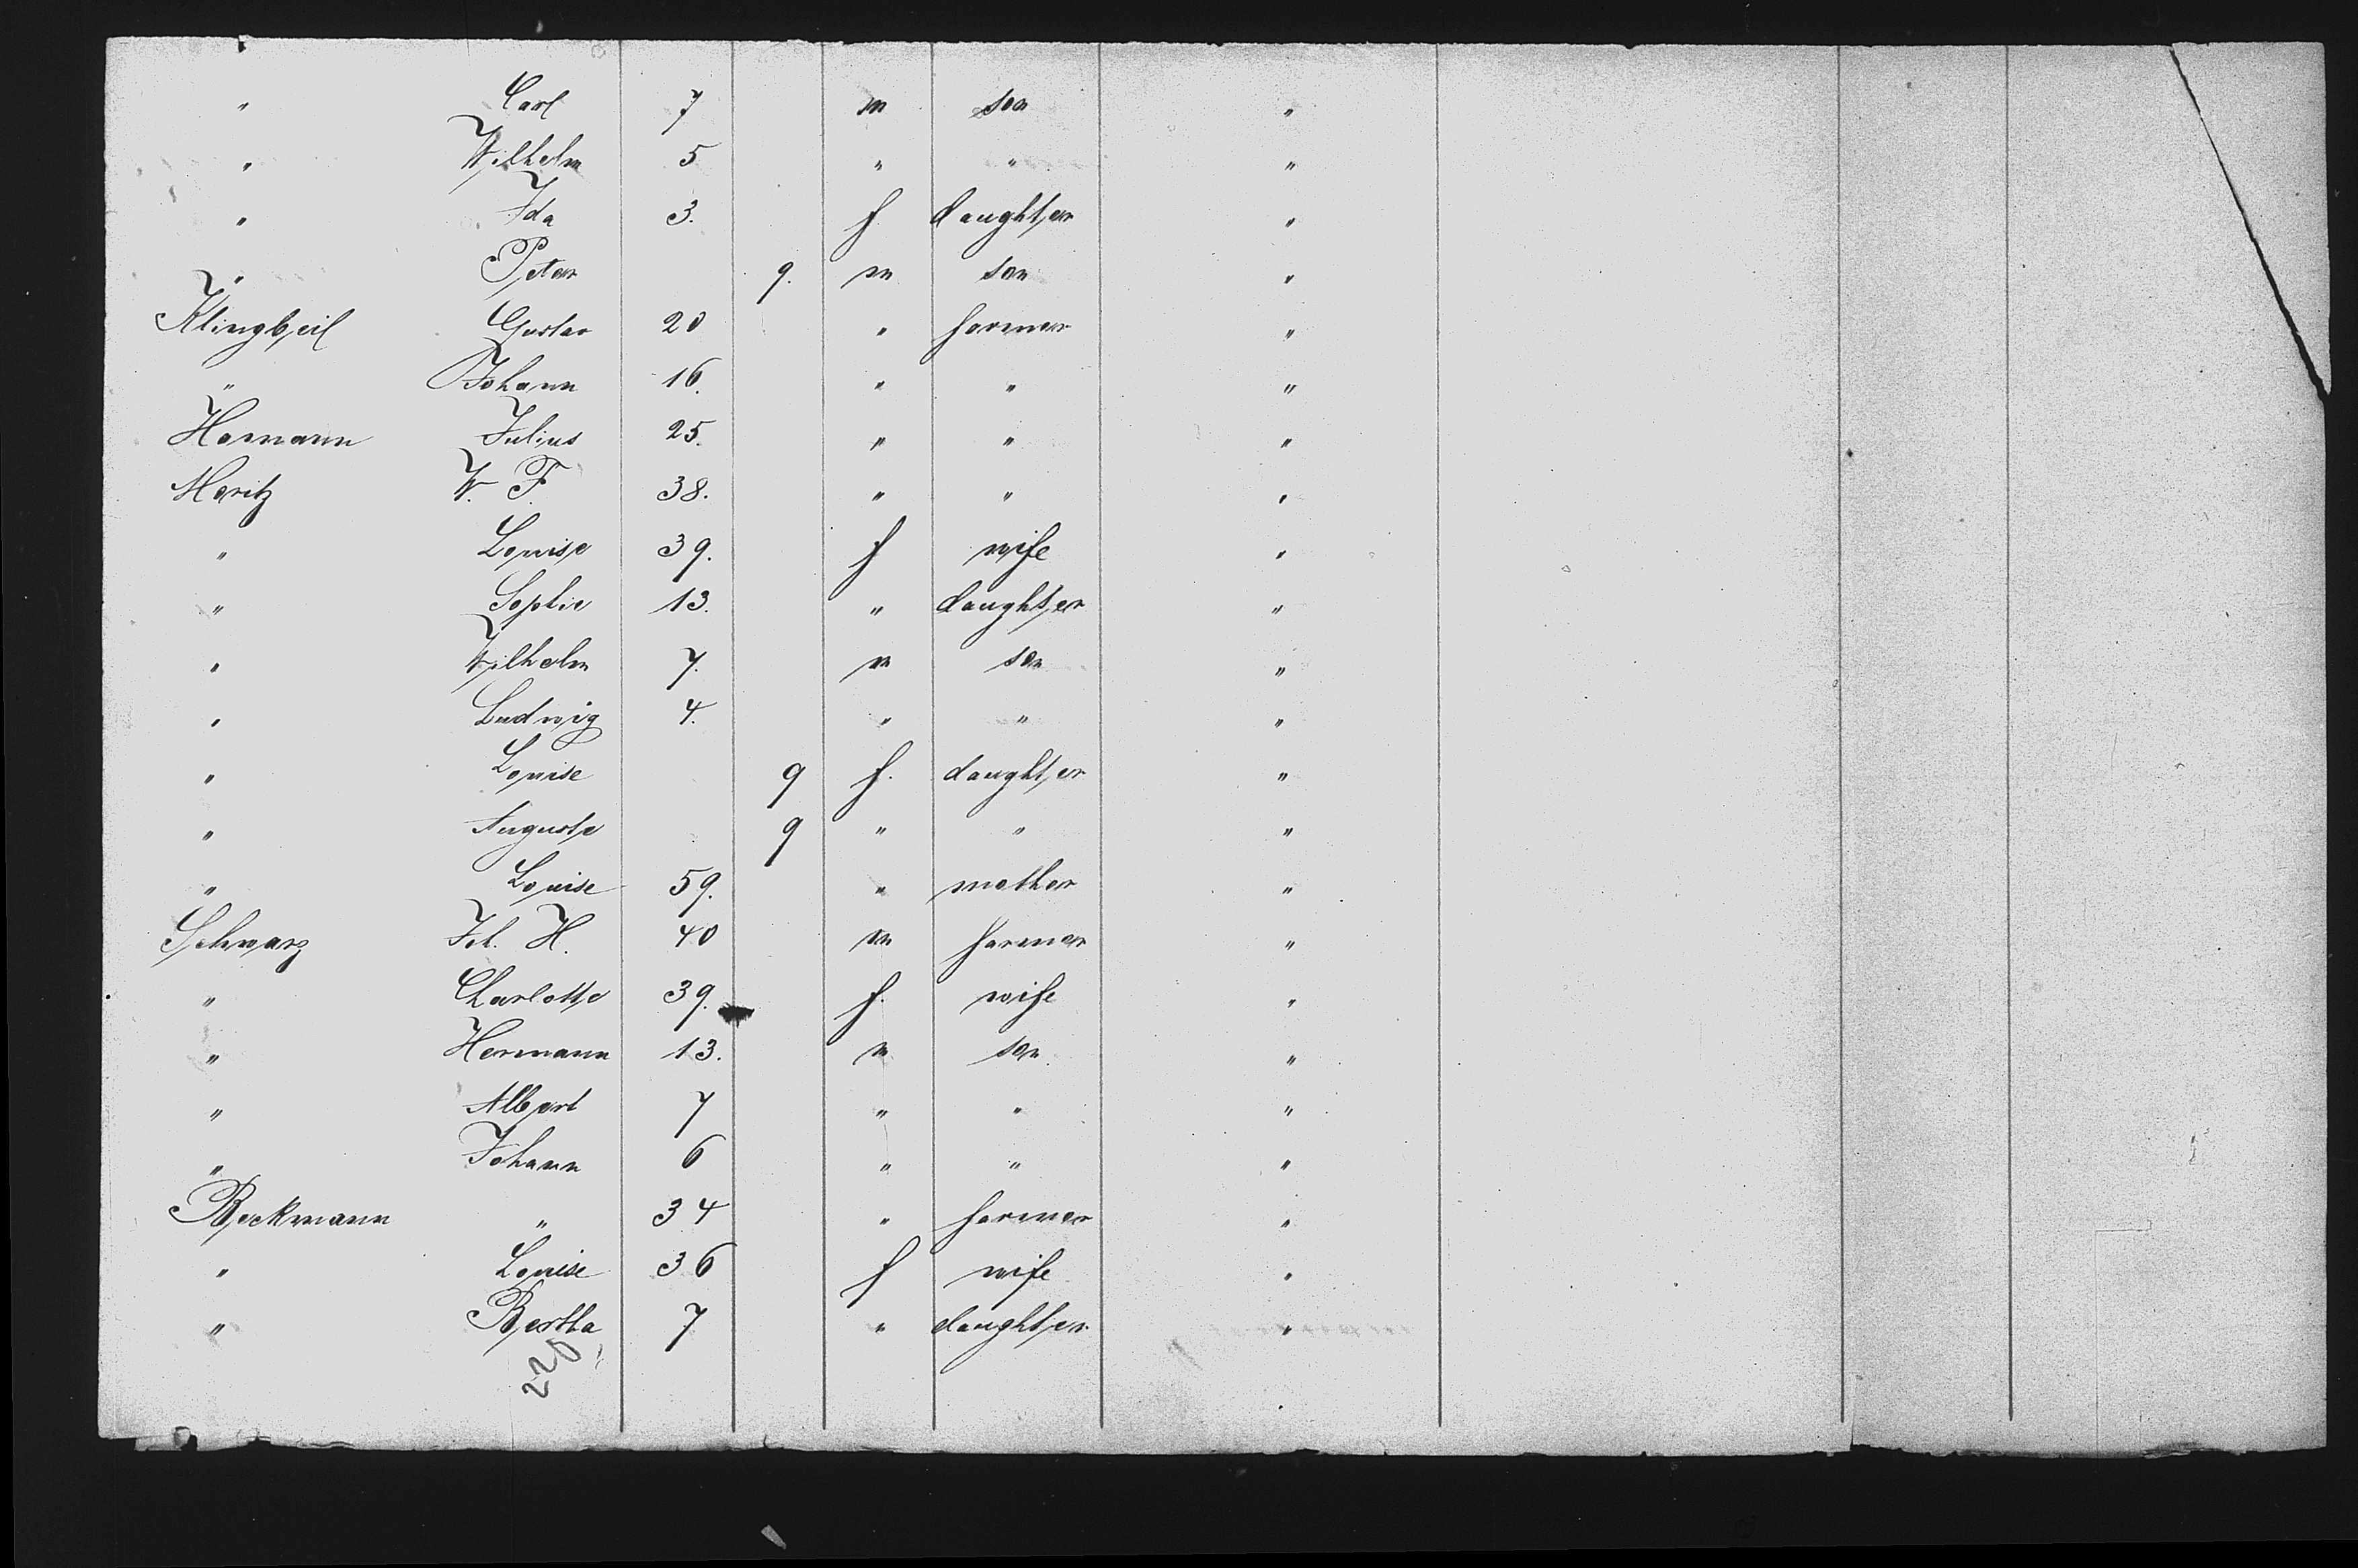 " Carl 7 m son "
" Wilhelm 5 " " "
" Ida 3. f daughter "
" Peter 9. m son "
Klingbeil Gustav 20 " farmer "
" Johann 16. " " "
Homann Julius 25. " " "
Moritz W. F. 38. " " "
" Louise 39. f wife "
" Sophie 13. " daughter "
" Wilhelm 7. m son "
" Ludwig 4. " " "
" Louise 9 f. daughter "
" Auguste 9 " " "
" Louise 59. " mother "
Schwarz Joh. H. 40 m farmer "
" Charlotte 39. f. wife "
" Hermann 13. m son "
" Albert 7 " " "
" Johann 6 " " "
Beckmann " 34 " farmer "
" Louise 36 f wife "
" Bertha 7 " daughter "
220